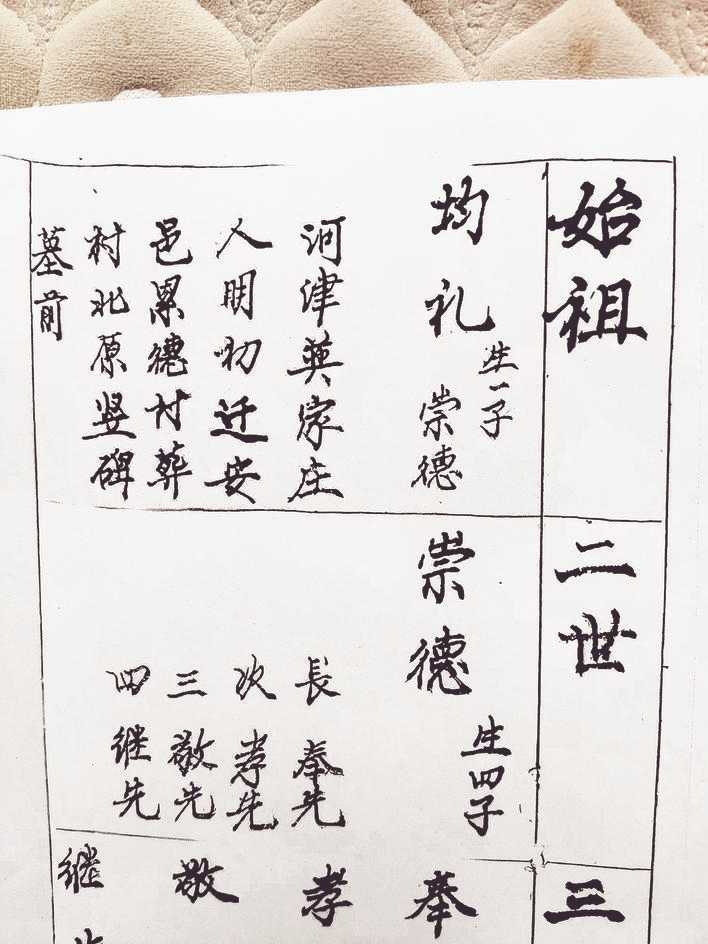 始祖
均礼
生一子
崇德
河津英家庄
人明初迁安
邑累德村葬
村北原竖碑
墓前
二世
崇德
生四子
長奉先
次孝先
三敬先
四继先
三
奉
孝
敬
继